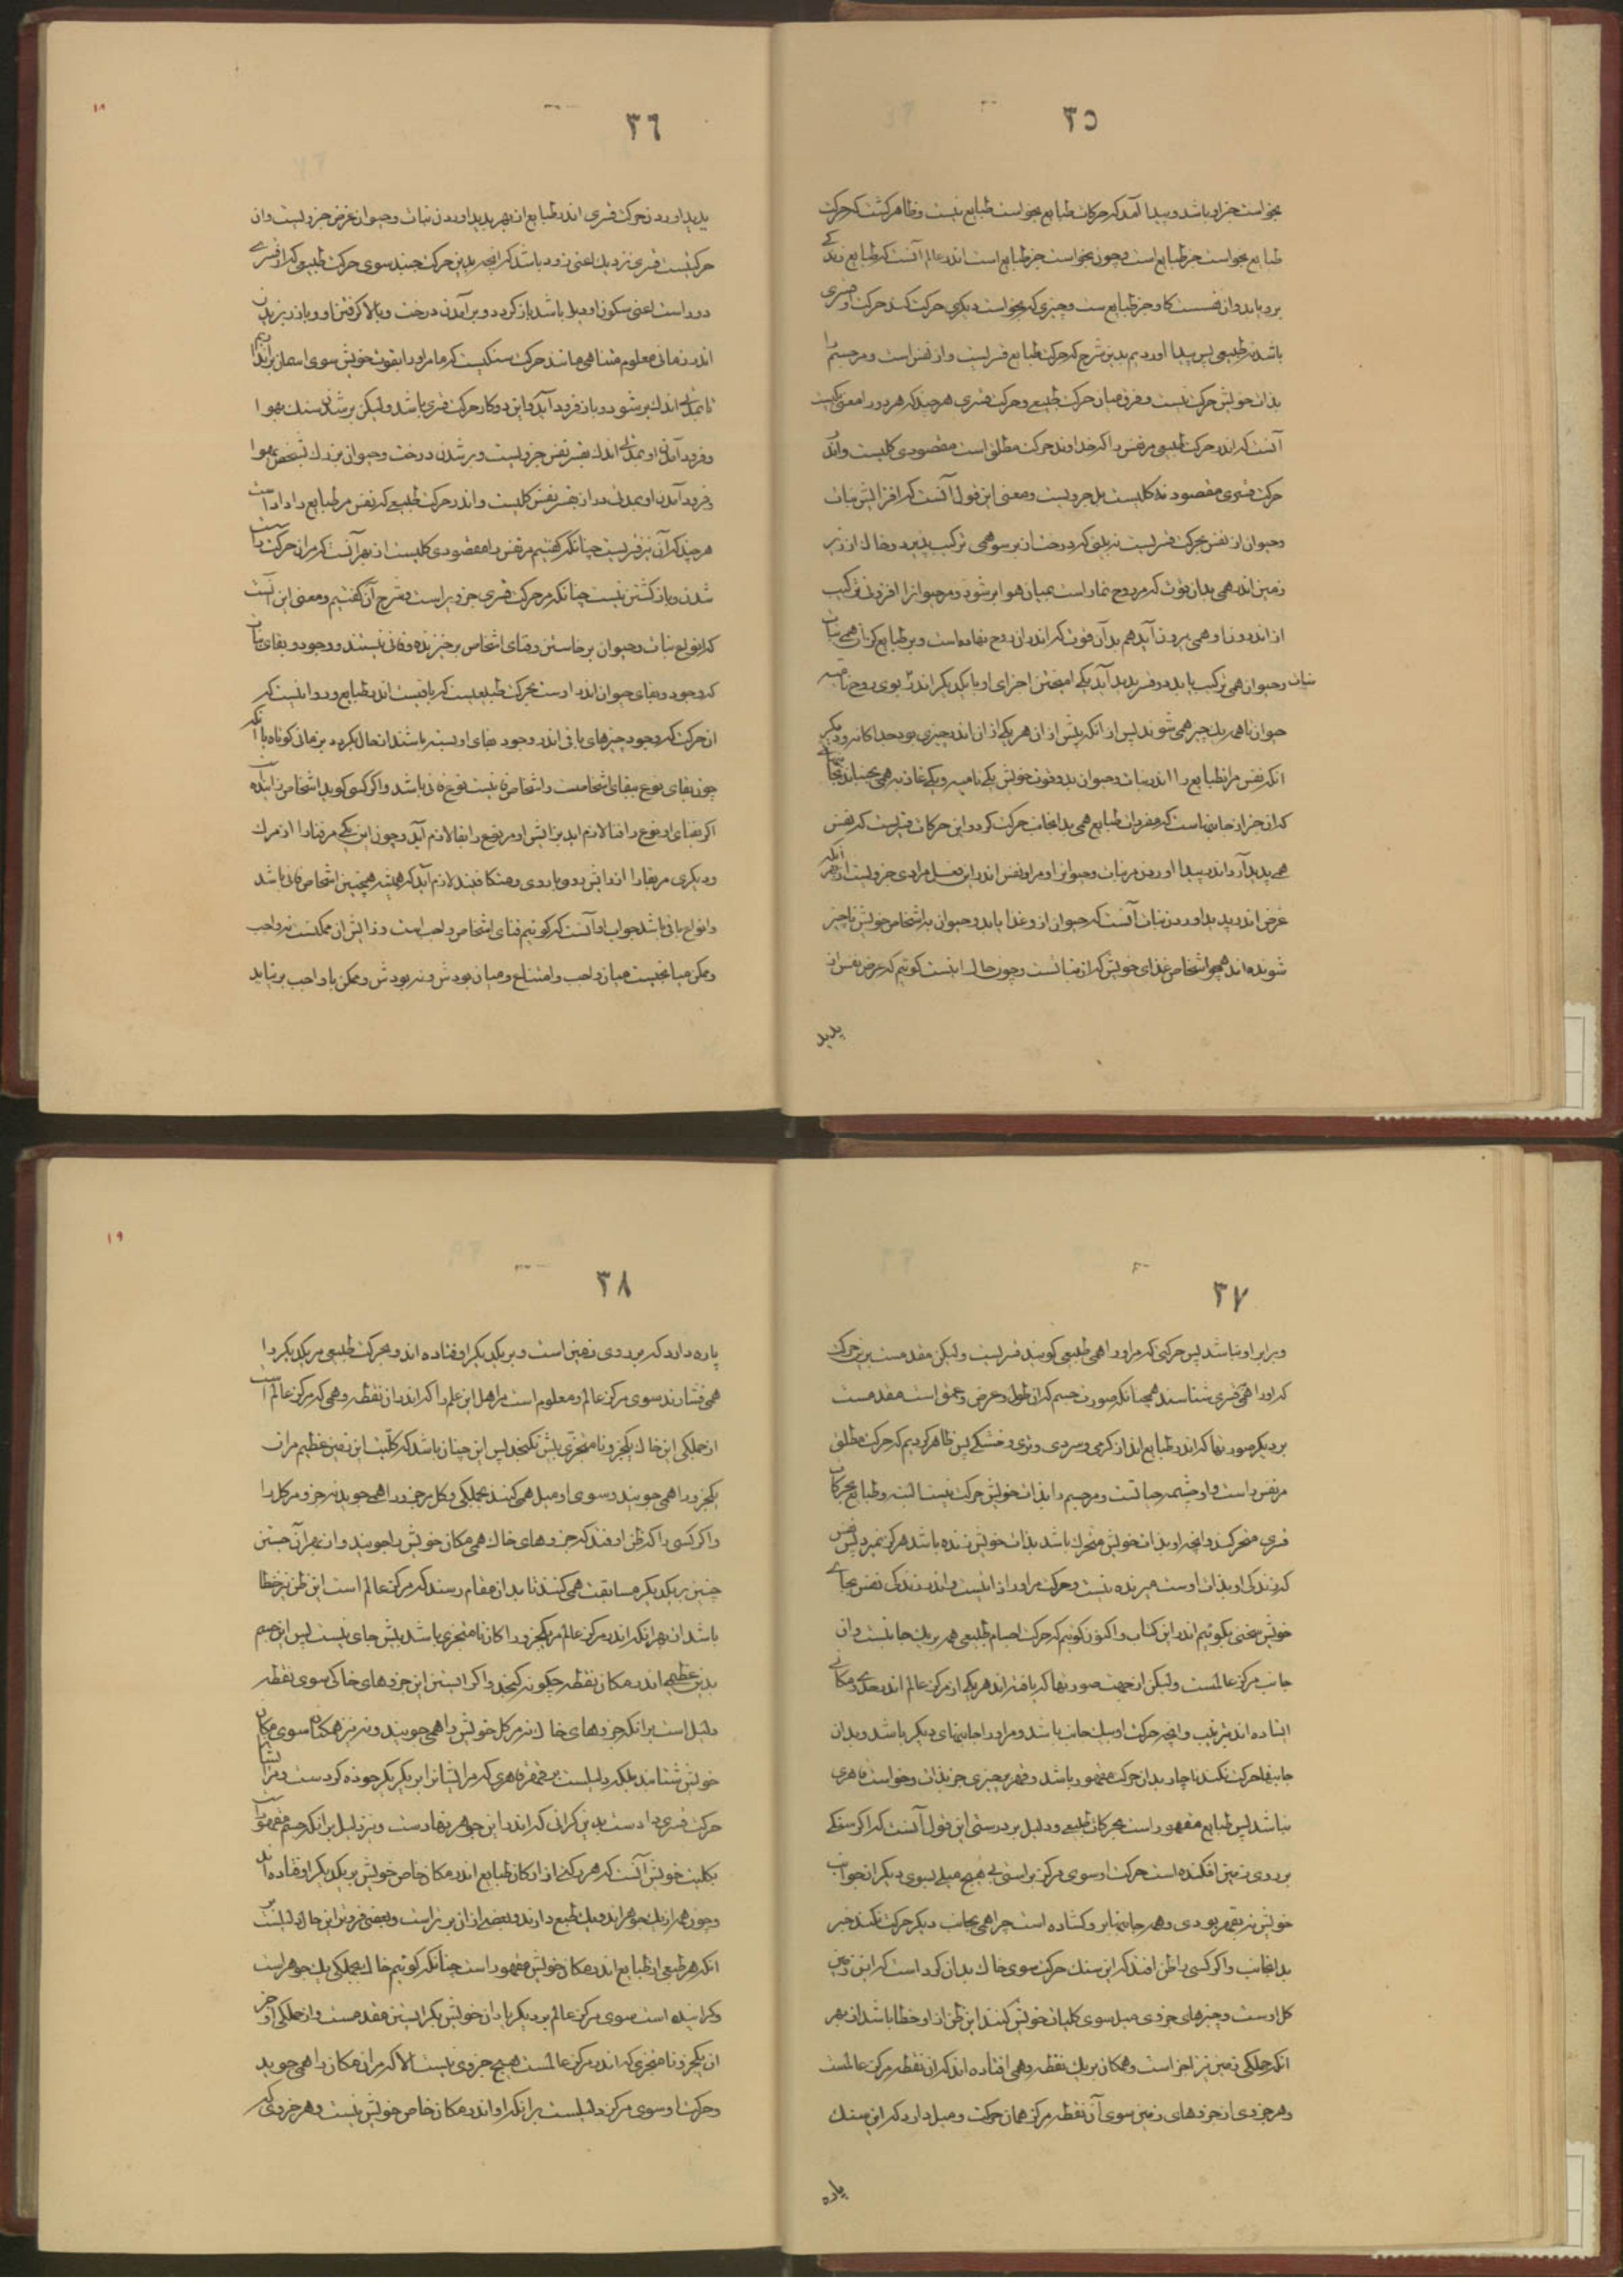 ۳۵
بخواست جز او باشد و پیدا آمد که حرکات طبایع بخواست طبایع نیست و ظاهر گشت که حرکت
طبایع بخواست جز طبایع است و چون بخواست جز طبایع است اندر عالم آنست که طبایع زندگی
برو یابد و ان نفسست کاو جز طبایع ست و چیزی که بخواست دیگری حرکت کند حرکت او قسری
باشد نه طبیعی پس پیدا اوردیم بدین شرح که حرکت طبایع قسریست و از نفس است و مر جسم را
بذات خویش حرکت نیست و فرق میان حرکت طبیعی و حرکت قسری هر چند که هر دو را معنی یکیست
آنست که اندر حرکت طبیعی مر نفس را که خداوند حرکت مطلق است مقصودی کلیست و اندر
حرکت قسری مقصود نه کلیست بل جزویست و معنی این قول آنست که افزایش نبات
و حیوان از نفس بحرکت قسریست نه بینی که درخت از بر سو همی ترکیب پذیرد و خاک از زیر
زمین اندر همی بدان قوت که مر روح نما راست بمیان هوا بر شود و مر حیوانرا افزونی ترکیب
از اندرون او همی برون آید هم بدان قوت که اندران روح نهاده است و بر طبایع کزان همی نبات
نبات و حیوان همی ترکیب یابد دو قسر پدید آید یکی امیختن اجزای او با یکدیگر اندر بوی روح نامیه
حیوان تا همه یک چیز همی شوند پس از انکه پیش از ان هر یکی از ان اندر چیزی بود جداگانه و دیگر
انکه نفس مر انطبایع را اندر نبات و حیوان بدو قوت خویش یکی نامیه و یکی غاذیه همی بجنباند بجائی
که ان جز از جانبهاست که مفردات طبایع همی بدانجانب حرکت کرد و این حرکات قسریست که نفس
همی پدید آرد اندر پیدا اوردن مر نبات و حیوان او مر او نفس اندر این فعل مرادی جزویست از بهر آنکه
غرض اندر پدید اوردن نبات آنست که حیوان از و غذا یابد و حیوان به اشخاص خویش ناچیز
شونده اند همچو اشخاص غذای خویش که از نباتست و چون حال اینست گوئیم که غرض نفس از
پدید
۳۶
۱۸
پدید اوردن حرکت قسری اندر طبایع از بهر پدید اوردن نبات و حیوان غرض جزویست و ان
حرکتیست قسری نزدیک اعنی زود باشد که انچه بدین حرکت جنبد سوی حرکت طبیعی که از قسری
دور است اعنی سکون او میل باشد باز گردد و بر آمدن درخت و بالا گرفتن او و باز ریزیدن
اندر زمانی معلوم متناهی مانند حرکت سنگیست که ما مر او را بقوت خویش سوی اسمان براندازیم
تا بمدتی اندک بر شود و باز فرود آید و این دو کار حرکت قسری باشد ولیکن بر شدن سنگ بهوا
و فرود آمدن او بمدتی اندک بقسر نفس جزویست و بر شدن درخت و حیوان بزرگ شخص بهوا
و فرود آمدن او بمدتی دراز بقسر نفس کلیست و اندر حرکت طبیعی که نفس مر طبایع را داد است
هر چند که آن نیز قسریست چنانکه گفتیم مر نفس را مقصودی کلیست از بهر آنست که مر ان حرکت راست
شدن و باز گشتن نیست چنانکه مر حرکت قسری جزوی راست و شرح آن گفتیم و معنی این آنست
که انواع نبات و حیوان بر خاستن و فنای اشخاص بر خیزنده و فانی نیستند و وجود و بقای نبات
که وجود و بقای حیوان اندر اوست بحرکت طبیعیست که باقیست اندر طبایع و روا نیست که
ان حرکت که وجود چیزهای باقی اندر وجود بقای او بسته باشند انحال گردد بزمانی کوتاه با آنکه
چون بقای نوع ببقای اشخاصست و اشخاص فانیست نوع فانی باشد و اگر کسی گوید اشخاص زاینده
اگر بقای او نوع را فنا لازم اید بزایش او مر نوع را بقا لازم آید و چون این یکی مر فنا را از مرگ
و دیگری مر بقا را از زایش بدو باز دوی و همتکافیند لازم آید که همیشه همچنین اشخاص فانی باشد
و انواع باقی باشد جواب او آنست که گوئیم فنای اشخاص واجبست و زایش ان ممکنست نه واجب
و ممکن میانجیست میان واجب و امتناع و میان بودش و نه بودش و ممکن با واجب بر نیاید
۳۷
و برابر او نباشد پس حرکتی که مر او را همی طبیعی گویند قسریست ولیکن مقدمست برین حرکت
که او را همی قسری شناسند همچنانکه صورت جسم که ان طول و عرض و عمق است مقدمست
بر دیگر صورتها که اندر طبایع اند از گرمی و سردی و تری و خشکی پس ظاهر کردیم که حرکت مطلق
مر نفس راست و او چشمه حیاتست و مر جسم را بذات خویش حرکت نیست البته و طبایع بحرکات
قسری متحرکند و انچه او بذات خویش متحرک باشد بذات خویش زنده باشد هرگز نمیرد پس نفس
که زندگی او بذات اوست میرنده نیست و حرکت مر او را ذاتیست و اندر زندگی نفس بجای
خویش سخنی بگوئیم اندر این کتاب و اکنون گوئیم که حرکت اجسام طبیعی همه بر یک جانبست و ان
جانب مرکز عالمست ولیکن از جهت صورتها که یافته اند هر یکی از مرکز عالم اندر حدی و مکانی
ایستاده اند بترتیب و انچه حرکت او بیک جانب باشد و مر او را جانبهای دیگر باشد و بدان
جانبها حرکت نکند ناچار بدان حرکت مقهور باشد و قهر بر چیزی جز بذات و خواست قاهری
نباشد پس طبایع مقهور است بحرکات طبیعی و دلیل بر درستی این قول آنست که اگر سنگی
بر روی زمین افکنده است حرکت او سوی مرکز براستی بی هیچ میلی بسوی دیگر از جوانب
خویش نه بقهر بودی و همه جانبها برو گشاده است چرا همی بجانب دیگر حرکت نکند جز
بدانجانب و اگر کسی را ظن افتد که این سنگ حرکت سوی خاک بدان کرد است که این زمین
کل اوست و چیزهای جزوی میل سوی کلیات خویش کنند این ظن از او خطا باشد از بهر
انکه جملگی زمین نیز اجزا است و همگان بر یک نقطه وهمی افتاده اند که ان نقطه مرکز عالمست
و هر جزوی از جزوهای زمین سوی آن نقطه مرکز همان حرکت و میل دارد که این سنگ
پاره
۳۸
۱۹
پاره دارد که بر روی زمین است و بر یکدیگر اوفتاده اند و بحرکت طبیعی مر یکدیگر را
همی فشارند سوی مرکز عالم و معلوم است مر اهل این علم را که اندران نقطه وهمی که مرکز عالم است
از جملگی این خاک یکجزو نامتجزی بیش نگنجد پس این چنان باشد که کلیت این زمین عظیم مر ان
یکجزو را همی جویند و سوی او میل همی کنند بجملگی و کل مر جزو را همی جوید نه جزو مر کل را
و اگر کسی را که ظن اوفتد که جزوهای خاک همی مکان خویش را جویند و از بهر آن جستن
چنین بر یکدیگر مسابقت همی کنند تا بدان مقام رسند که مرکز عالم است این ظن نیز خطا
باشد از بهر انکه اندر مرکز عالم مر یکجزو را کان نامتجزی باشد بیش جای نیست پس این جسم
بدین عظیمی اندر مکان نقطه چگونه گنجد و اگر ایستن این جزوهای خاکی سوی نقطه
دلیل است بر انکه جزوهای خاک نه مر کل خویش را همی جویند و نه نیز همگنان سوی مکان
خویش شتابند بلکه دلیلست بر قهر قاهری که مر ایشانرا بر یکدیگر جوذه کردست و مر ایشانرا
حرکت قسری دادست بدین گرانی که اندر این جوهر نهادست و نیز دلیل بر انکه جسم مقهورست
بکلیت خویش آنست که هر رکنی از ارکان طبایع اندر مکان خاص خویش بر یکدیگر اوفتاده اند
و چون همه از یک جوهراند و یک طبع دارند و بعضی از ان برتراست و بعضی فروتر این حال دلیلست بر
انکه هر طبعی از طبایع اندر مکان خویش مقهور است چنانکه گوئیم خاک بجملگی یک جوهر است
و گراینده است سوی مرکز عالم بر دیگر یاران خویش بگرایستن مقدمست و از جملگی او جز
ان یکجزو نامتجزی که اندر مرکز عالمست هیچ جزوی نیست الا که مر ان مکان را همی جوید
و حرکت او سوی مرکز دلیلست بر انکه او اندر مکان خاص خویش نیست و هر جزوی که